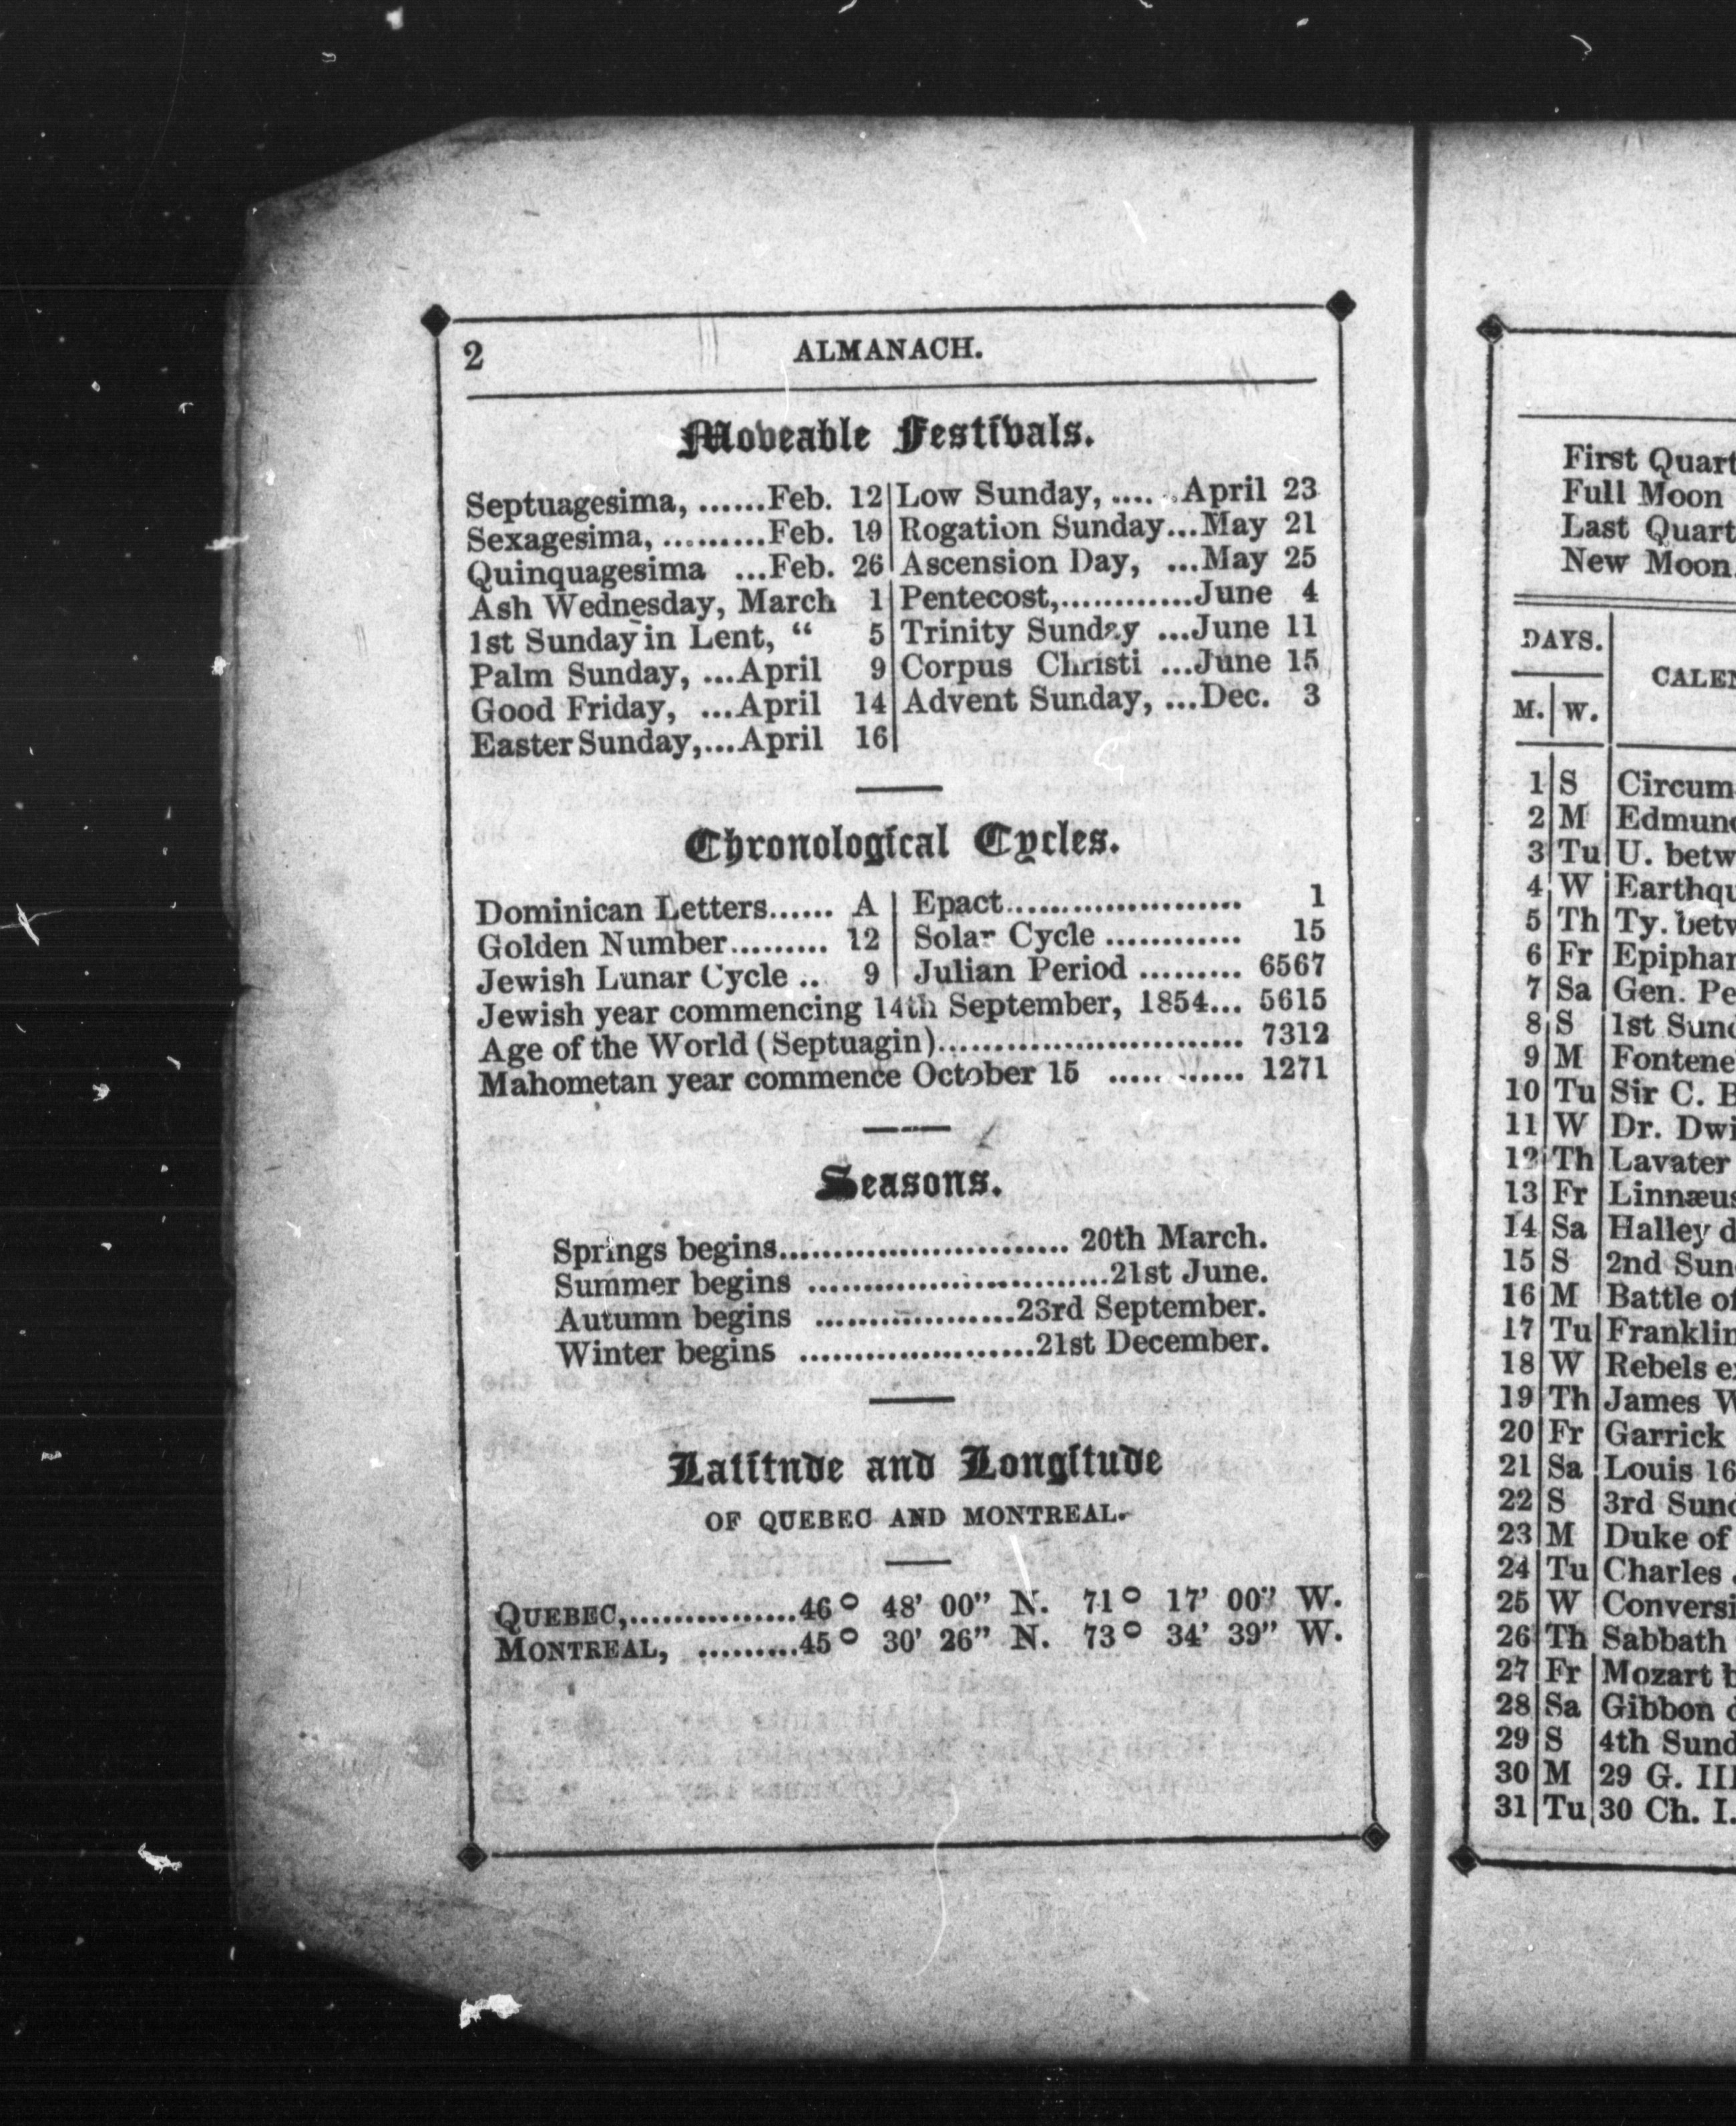 2 ALMANACH.
Moveable Festivals.
Septuagesima, ......Feb. 12
Sexagesima, .........Feb. 19
Quinquagesima ...Feb. 26
Ash Wednesday, March 1
1st Sunday in Lent, “ 5
Palm Sunday, ...April 9
Good Friday, ...April 14
Easter Sunday,...April 16
Low Sunday, ......April 23
Rogation Sunday...May 21
Ascension Day, ...May 25
Pentecost,............June 4
Trinity Sunday ...June 11
Corpus Christi ...June 15
Advent Sunday, ...Dec. 3
Chronological Cycles.
Dominican Letters...... A
Golden Number......... 12
Jewish Lunar Cycle .. 9
Epact..................... 1
Solar Cycle ............ 15
Julian Period ......... 6567
Jewish year commencing 14th September, 1854... 5615
Age of the World (Septuagin)............................ 7312
Mahometan year commence October 15 ............ 1271
Seasons.
Springs begins.......................... 20th March.
Summer begins ...........................21st June.
Autumn begins ..................23rd September.
Winter begins .....................21st December.
Latitnde and Longitude
OF QUEBEC AND MONTREAL.
QUEBEC,...............46° 48’ 00” N. 71° 17’ 00” W.
MONTREAL, .........45° 30’ 26” N. 73° 34’ 39” W.
First Quart
Full Moon
Last Quart
New Moon
DAYS.
M. W.
CALEN
1 S Circum
2 M Edmund
3 Tu U. betw
4 W Earthqu
5 Th Ty. betw
6 Fr Epiphan
7 Sa Gen. Pe
8 S 1st Sund
9 M Fontene
10 Tu Sir C. B
11 W Dr. Dwi
12 Th Lavater
13 Fr Linnæus
14 Sa Halley d
15 S 2nd Sun
16 M Battle of
17 Tu Franklin
18 W Rebels ex
19 Th James W
20 Fr Garrick
21 Sa Louis 16
22 S 3rd Sund
23 M Duke of
24 Tu Charles
25 W Conversi
26 Th Sabbath
27 Fr Mozart b
28 Sa Gibbon
29 S 4th Sund
30 M 29 G. III
31 Tu 30 Ch. I.